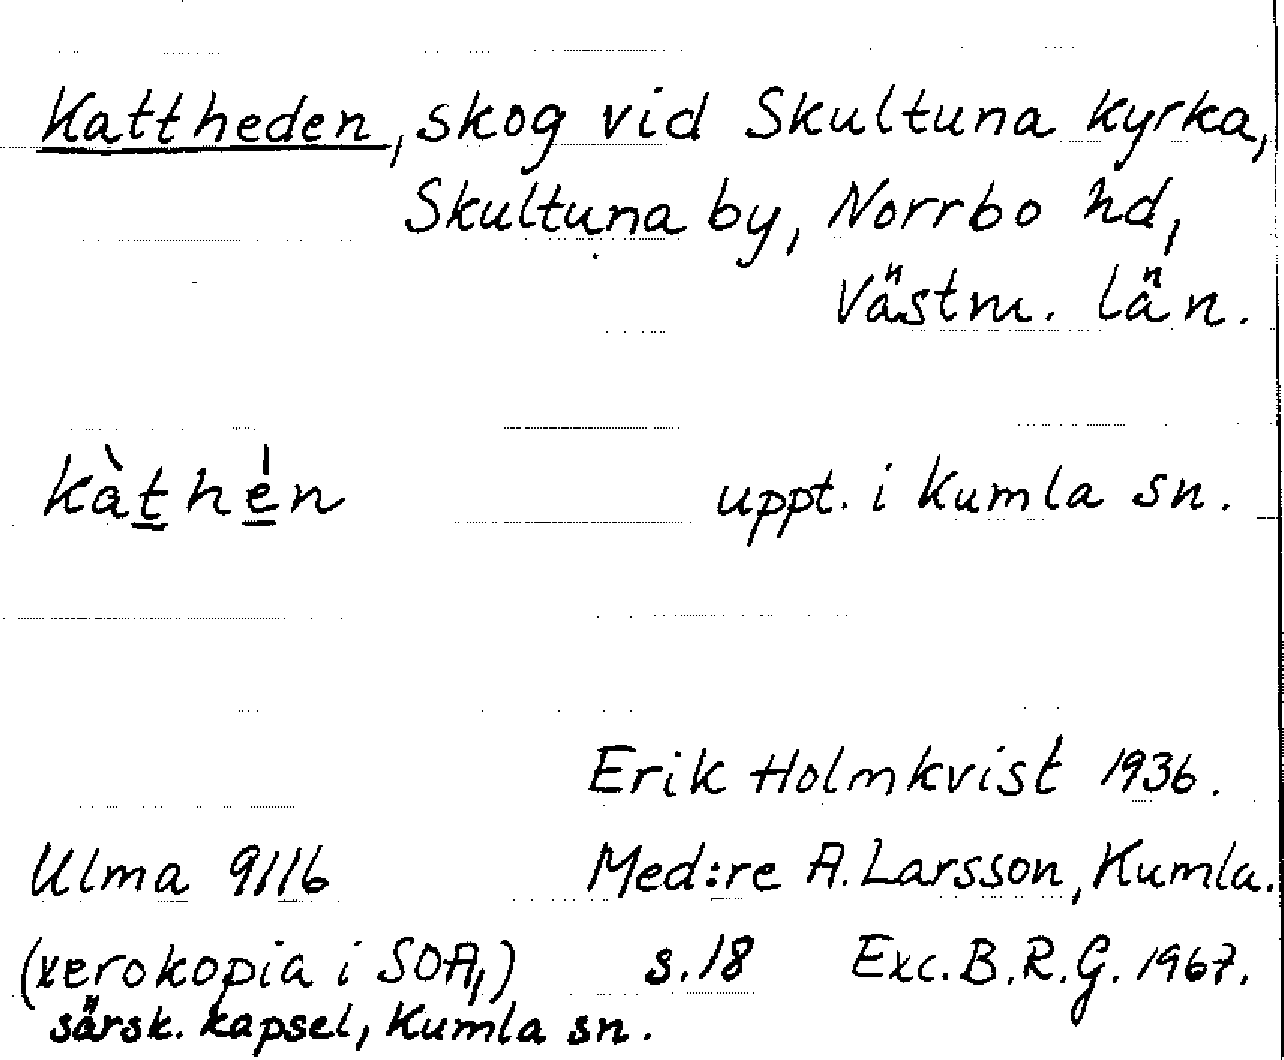 Kattheden, skog vid Skultuna kyrka,
Skultuna by, Norrbo hd,
Västm. län.
kàthén uppt. i Kumla sn.
Erik Holmkvist 1936.
Ulma 9116 Med:re A. Larsson, Kumla.
(xerokopia i SOA,) s. 18 Exc. B.R.G. 1967.
särsk. kapsel, Kumla sn.